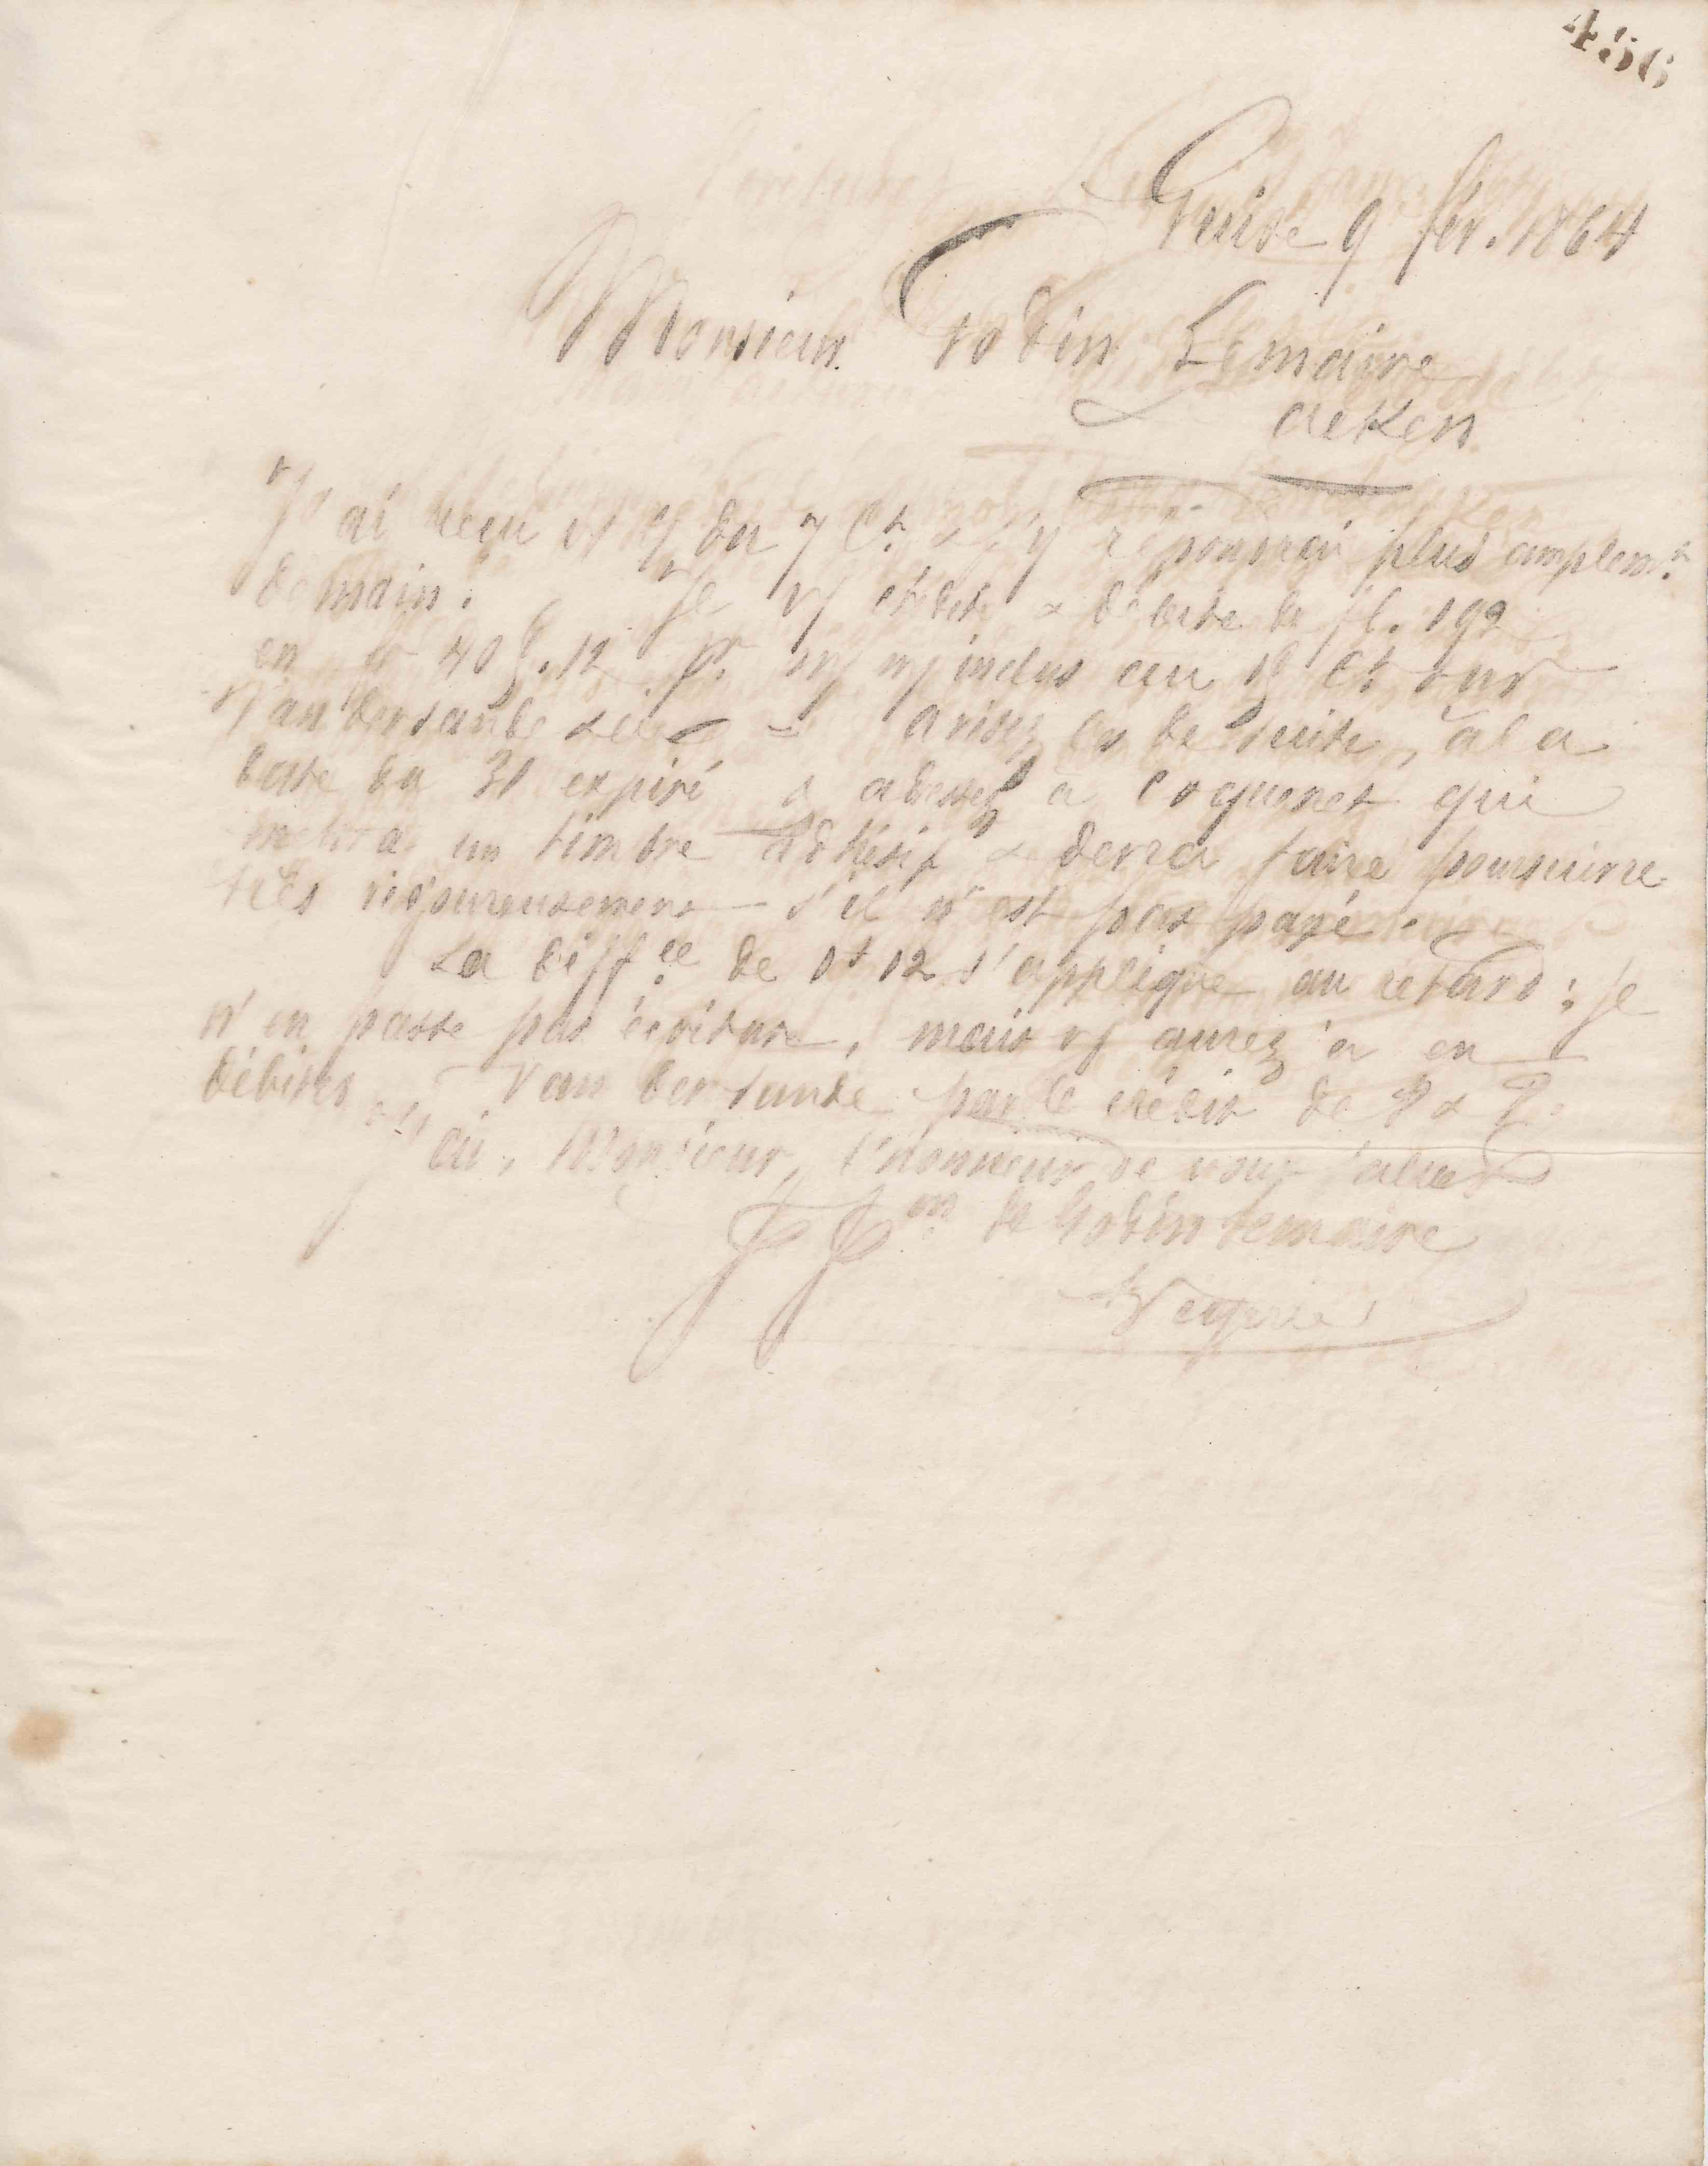 456
Guise 9 fév. 1864
Monsieur Godin Lemaire
aeken
J'ai reçu du 7 Ct & j'y répondrai plus amplemt
demain. Je crédite & débite de fl. 192
en 408.12 inclus au 18 Ct sur
Vandersande avisez les de suite, à la
date du 31 expiré & adressez à Coquenet qui
mettra un timbre adhésif & devra faire poursuivre
très rigoureusement s'il n'est pas payé.
La diffce de 1f 12 s'applique au retard ; je
n'en passe pas écriture, mais aurez à en
débiter Vandersande par le crédit de P & P.
J'ai, Monsieur, l'honneur de vous saluer
on de Godin Lemaire